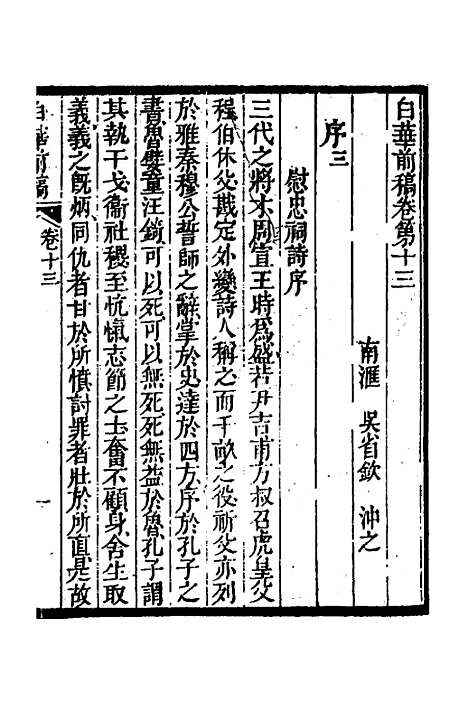 白華前稿卷第十三
南滙 吳省欽 沖之
序三
慰忠祠詩序
三代之將才周宣王時爲盛若尹吉甫方叔召虎皇父
程伯休父戡定外變詩人稱之而千畝之役祈父亦列
於雅秦穆公誓師之辭掌於史達於四方序於孔子之
書魯嬖童汪錡可以死可以無死死無益於魯孔子謂
其執干戈衞社稷至忼愾志節之士奮不顧身舍生取
義義之旣炳同仇者甘於所憤討罪者壯於所直是故
白華前稿 卷十三 一